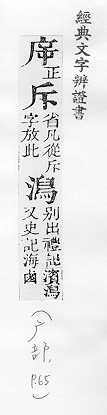 經典文字辨證書
㡿正斥省凡從斥字放此潟别出禮記濱潟又史記海卤
(广部, p.65)